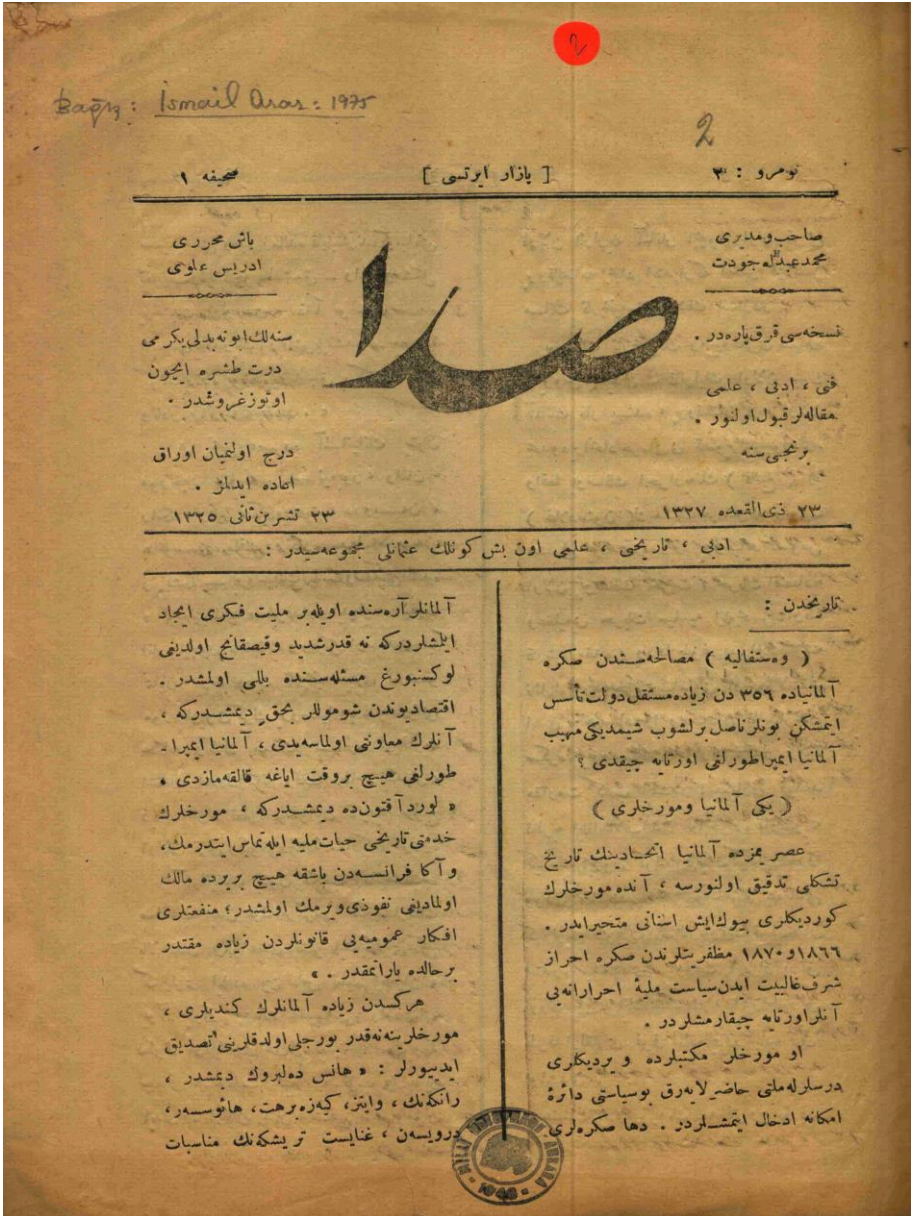 2
Bağış: İsmail Aras: 1975
2
نومرو : ٣
[ پازار ايرتسى ]
صحيفه ١
صاحب ومديرى
محمد عبدالله جودت
نسخه‌سى قرق پاره‌در .
فنى ، ادبى ، علمى
مقاله‌لر قبول اولنور .
برنجى سنه
٢٣ ذى القعده ١٣٢٧
صدا
باش محررى
ادريس علوى
سنه‌لك ابونه بدلى يكرمى
درت طشره ايچون
اوتوز غروشدر .
درج اولنميان اوراق
اعاده ايدلمز .
٢٣ تشرين ثانى ١٣٢٥
ادبى ، تاريخى ، علمى اون بش كونلك عثمانلى مجموعه‌سيدر :
تاريخدن :
( وه‌ستفاليه ) مصالحه‌سندن صكره
آلمانياده ٣٥٦ دن زياده مستقل دولت تأسس
ايتمشكن بونلر ناصل برلشوب شيمديكى مهيب
آلمانيا ايمپراطورلغى اورتايه چيقدى ؟
( يكى آلمانيا ومورخلرى )
عصر يمزده آلمانيا اتحادينك تاريخ
تشكلى تدقيق اولنورسه ، آنده مورخلرك
كوردكلرى بيوك ايش انسانى متحير ايدر .
١٨٦٦ و ١٨٧٠ مظفريتلرندن صكره احراز
شرف غالبيت ايدن سياست مليهٔ احرارانه‌يى
آنلر اورتايه چيقارمشلردر .
او مورخلر مكتبلرده ويرديكلرى
درسلرله ملتى حاضرلايه‌رق بوسياستى دائرهٔ
امكانه ادخال ايتمشلردر . دها صكره‌لرى
آلمانلر آره‌سنده اويله بر مليت فكرى ايجاد
ايلمشلردركه نه قدر شديد وقيصقانج اولديغى
لوكسنبورغ مسئله‌سنده بللى اولمشدر .
اقتصاديوندن شموللر بحق ديمشدركه ،
آنلرك معاونتى اولماسه‌يدى ، آلمانيا ايمپرا-
طورلغى هيچ بروقت اياغه قالقه‌مازدى .
« لورد آقتون‌ده ديمشدركه ، مورخلرك
خدمتى تاريخى حيات مليه ايله تماس ايتدرمك،
و آكا فرانسه‌دن باشقه هيچ بر يرده مالك
اولماديغى نفوذى ويرمك اولمشدر؛ منفعتلرى
افكار عموميه‌يى قانونلردن زياده مقتدر
برحالده ياراتمقدر . »
هركسدن زياده آلمانلرك كنديلرى ،
مورخلرينه نه‌قدر بورجلى اولدقلرينى تصديق
ايدييورلر : « هانس ده‌لبروك ديمشدر ،
رانكه‌نك ، وايتز، كيه‌زه‌برهت، هائوسسه‌ر،
درويسه‌ن ، غنايست تريشكه‌نك مناسبات
MİLLİ KÜTÜPHANE ANKARA
1946